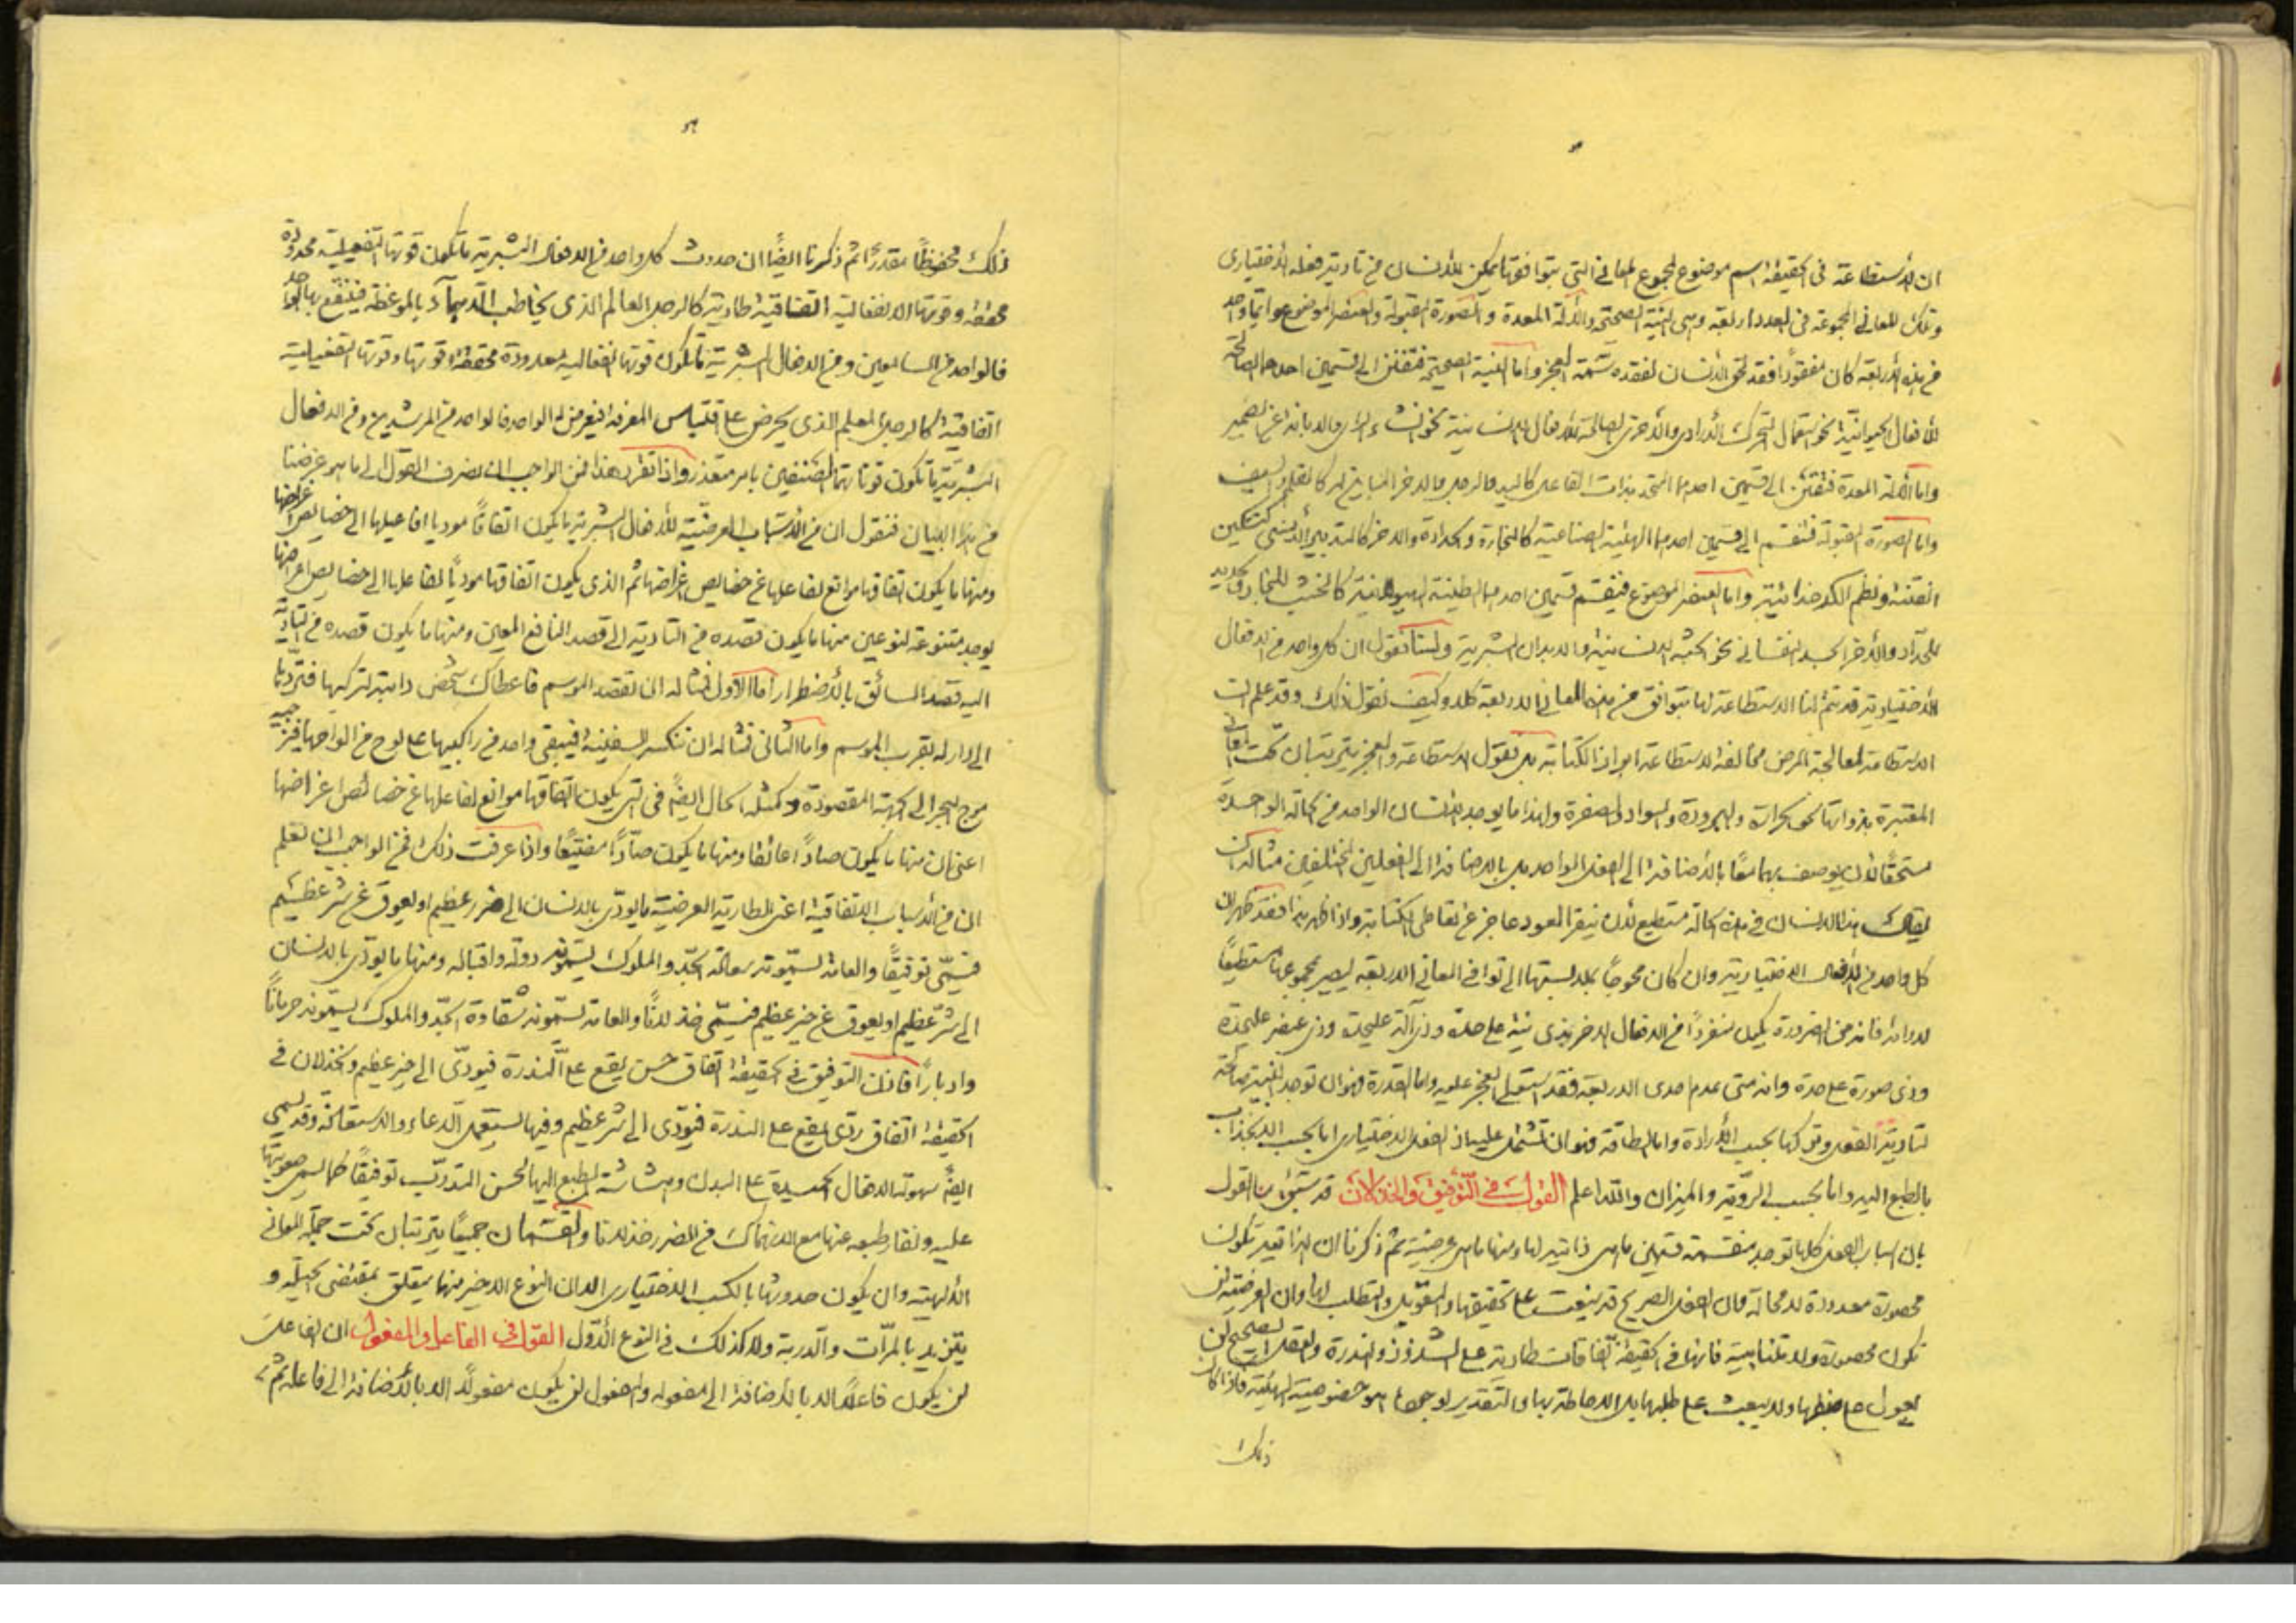 ان الأستطاعة فى الحقيقة اسم موضوع لمجموع المعانى التى بتوافقها يمكن للأنسان من تادية فعله الأختيارى
وتلك المعانى المجموعة فى العدد اربعة وهى البنية الصحيحة والألة المعدة والصورة المقبولة والعنصر الموضوع وايما واحد
من هذه الأربعة كان مفقودًا فقد لحق الأنسان لفقده سمة العجز واما البنية الصحيحة فتفتنن الى قسمين احدهما الصالحة
للأفعال الحيوانية نحو استعمال التحرك الأرادى والأخرى الصالحة للأفعال الانسانية نحو والابانة عن الضمير
واما الألة المعدة فتفتنن الى قسمين احدهما المتحد بذات الفاعل كاليد والرجل والاخر المباين له كالقلم والسيف
واما الصورة المقبولة فتنقسم الى قسمين احدهما الهيئة الصناعية كالنجارة والحدادة والاخر كالتدبير الأنسى كتسكين
الفتنة ونظم الكدخدائية واما العنصر الموضوع فينقسم قسمين احدهما الطينة الهيولانية كالخشب للنجار والحديد
للحدّاد والأخر الجسد النفسانى نحو الجثة الانسانية والابدان البشرية ولسنا نقول ان كل واحد من الافعال
الأختيارية قد يتم لنا الاستطاعة لها بتوافق من هذه المعانى الاربعة كلا وكيف نقول ذلك وقد علم ان
الاستطاعة لمعالجة المرض مخالفة لاستطاعة الكتابة بل نقول الاستطاعة والعجز يترتبان تحت المعانى
المعتبرة بذواتها نحو الحرارة والبرودة والسواد والصفرة ولهذا ما يوجد الأنسان الواحد فى الحالة الواحدة
مستحقًا لأن يوصف بهما معًا بالأضافة الى الفعل الواحد بل بالاضافة الى الفعلين المختلفين مثاله ان
يقال هذا الانسان فى هذه الحالة مستطيع لأن ينقر العود عاجز عن تعاطى الكتابة واذا ظهر هذا فقد ظهر ان
كل واحد من الأفعال الاختيارية وان كان محوجًا الى توافى المعانى الاربعة ليصير بمجموعها مستطيعًا
لادائه فانه من الضرورة يكون منفردًا من الافعال الاخر بذى بنية على حدة وذى آلة عليحدة وذى عنصر عليحدة
وذى صورة على حدة وانه متى عدم احدى الاربعة فقد استعلى العجز عليه واما القدرة فهو ان توجد البنية صالحة
لتادية الفعل وتركها بحسب الأرادة واما الطاقة فهو ان تشتمل عليها الفعل الاختيارى اما بحسب الانجذاب
بالطبع اليه واما بحسب الروّية والميزان والله اعلم القول فى التّوفيق والخذلان قد سبق منا القول
بان اسباب الفعل كلها توجد منقسمة قسمين ما هى ذاتية لها ومنها ما هى عرضية ثم ذكرنا ان الذاتية تكون
محصورة معدودة لا محالة وان العقل الصريح قد ينبعث على تحقيقها والتعويل والتطلب لها وان العرضية لن
تكون محصورة ولا متناهية فانها فى الحقيقة اتفاقات طارية على الشذوذ والندرة والعقل الصحيح لن
يعول على ضبطها ولا ينبعث على طلبها بل الاحاطة بها والتقدير لوجودها هو خصوصية الهيّة فاذا كان
ذلك
ذلك محفوظًا مقدرًا ثم ذكرنا ايضًا ان حدوث كل واحد من الافعال البشرية ما تكون قوتها التفعيلية محدودة
محققة وقوتها الانفعالية اتفاقية طارية كالرجل العالم الذى يخاطب الدهماء بالموعظة فينتفع بها الواحد
فالواحد من السامعين ومن الافعال البشرية ما تكون قوتها انفعالية معدودة محققة وقوتها التفعيلية
اتفاقية كالرجل المعلم الذى يحرض على اقتباس المعرفة فيعرض له الواحد فالواحد من المرشدين ومن الافعال
البشرية ما تكون قوتاهما الصنفين بامر متعذر واذا تقرر هذا فمن الواجب ان نصرف القول الى ما هو غرضنا
من هذا البيان فنقول ان من الأسباب العرضية للأفعال البشرية ما يكون اتفاقًا موديا افاعيلها الى خصايص اغراضها
ومنها ما يكون اتفاقها موانع لفاعلها عن خصايص اغراضها ثم الذى يكون اتفاقها موديًا لفاعلها الى خصايص اغراضها
يوجد متنوعة لنوعين منها ما يكون قصده فى التادية الى قصد النافع المعين ومنها ما يكون قصده فى التادية
اليه قصد السائق بالأضطرار اما الاول فمثاله ان تقصد الموسم فاعطاك شخص دابة لتركبها فتردّها
الى داره بقرب الموسم واما الثانى فمثاله ان تنكسر السفينة فيبقى واحد من راكبيها على لوح من الواحها
موج البحر الى الجهة المقصودة وكمثله الحال ايضًا فى التى يكون اتفاقها موانع لفاعلها عن خصائص اغراضها
اعنى ان منها ما يكون صادًا عائقا ومنها ما يكون صادًا مفتيًا واذا عرفت ذلك فمن الواجب ان نعلم
ان من الأسباب الاتفاقية اعنى الطارية العرضية ما يودّى بالانسان الى خير عظيم او يعوق عن شر عظيم
فيسمّى توفيقًا والعامة تسمّونه سعادة الجدّ والملوك يسمونه دولة واقبالا ومنها ما يودّى بالانسان
الى شر عظيم او يعوق عن خير عظيم فيسمّى خذلانًا والعامة تسمّونه شقاوة الجدّ والملوك يسمّونه حرمانًا
وادبارًا فاذن التوفيق فى الحقيقة اتفاق حسن يقع على الندرة فيودّى الى خير عظيم والخذلان فى
الحقيقة اتفاق ردّى يقع على الندرة فيؤدى الى شر عظيم وفيهما يستعمل الدعاء والاستعاذة وقد يسمى
ايضًا سهولة الافعال الحميدة على البدن وهشاشة الطبع اليها لحسن التدرّب توفيقًا كما يسمى صعوبتها
عليه ونفار طبعه عنها مع الانهماك فى الضرر خذلانا والقسمان جميعًا يترتبان تحت جملة المعانى
الألهية وان يكون حدوثها بالكسب الاختيارى الا ان النوع الاخير منها يتعلق بمقتضى الجبلّة و
يتزيد بالمرّات والدربة ولا كذلك فى النوع الأوّل القول فى الفاعل والمفعول ان الفاعل
لن يكون فاعلًا الا بالأضافة الى مفعوله والمفعول لن يكون مفعولًا الا بالأضافة الى فاعله ثم